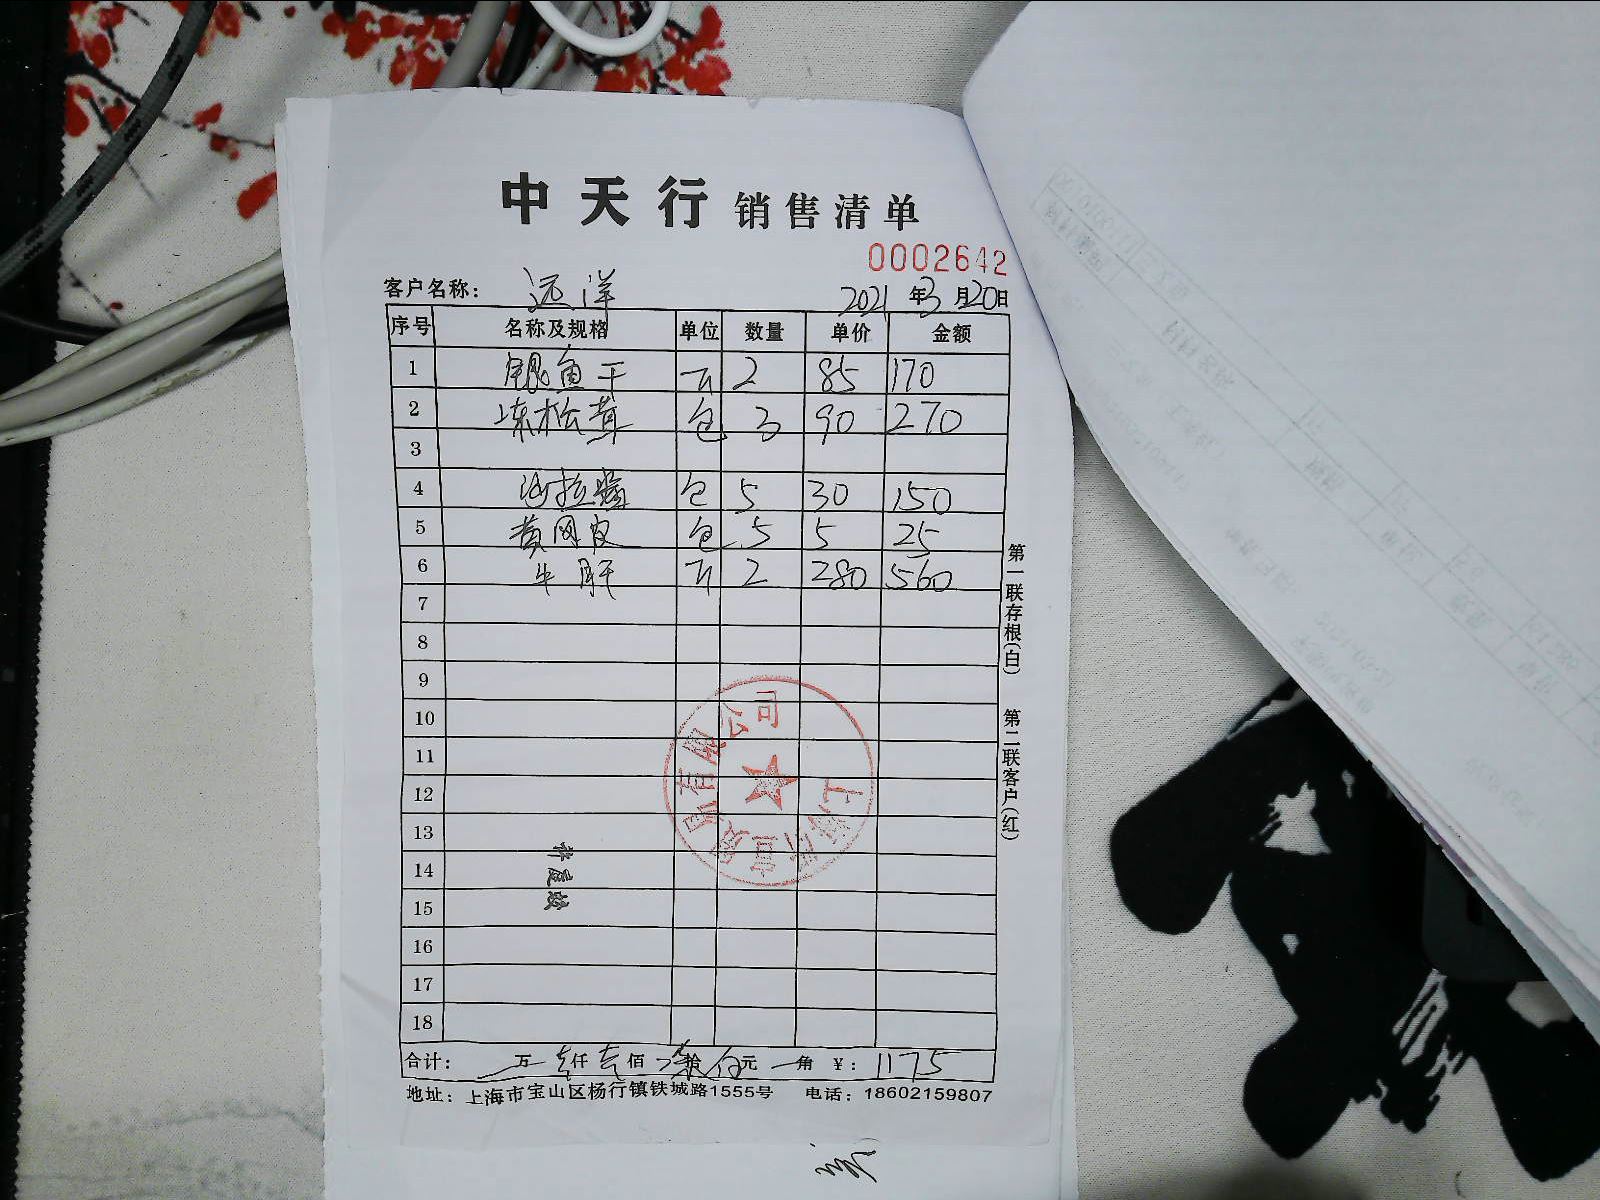 中天行 销售清单
0002642
客户名称： 远洋 2021 年 3 月 20 日
序号 名称及规格 单位 数量 单价 金额
1 鱼干 2 85 170
2 冻松茸 包 3 90 270
3
4 沙拉 包 5 30 150
5 黄网皮 包 5 5 25
6 牛肝 2 280 560
7
8
9
10
11
12
13
14
15
16
17
18
合计： 万 壱仟 壱佰 柒拾 伍元 角 ￥： 1175
地址：上海市宝山区杨行镇铁城路1555号 电话：18602159807
第一联存根（白） 第二联客户（红）
有限公司
上海
许夏敏